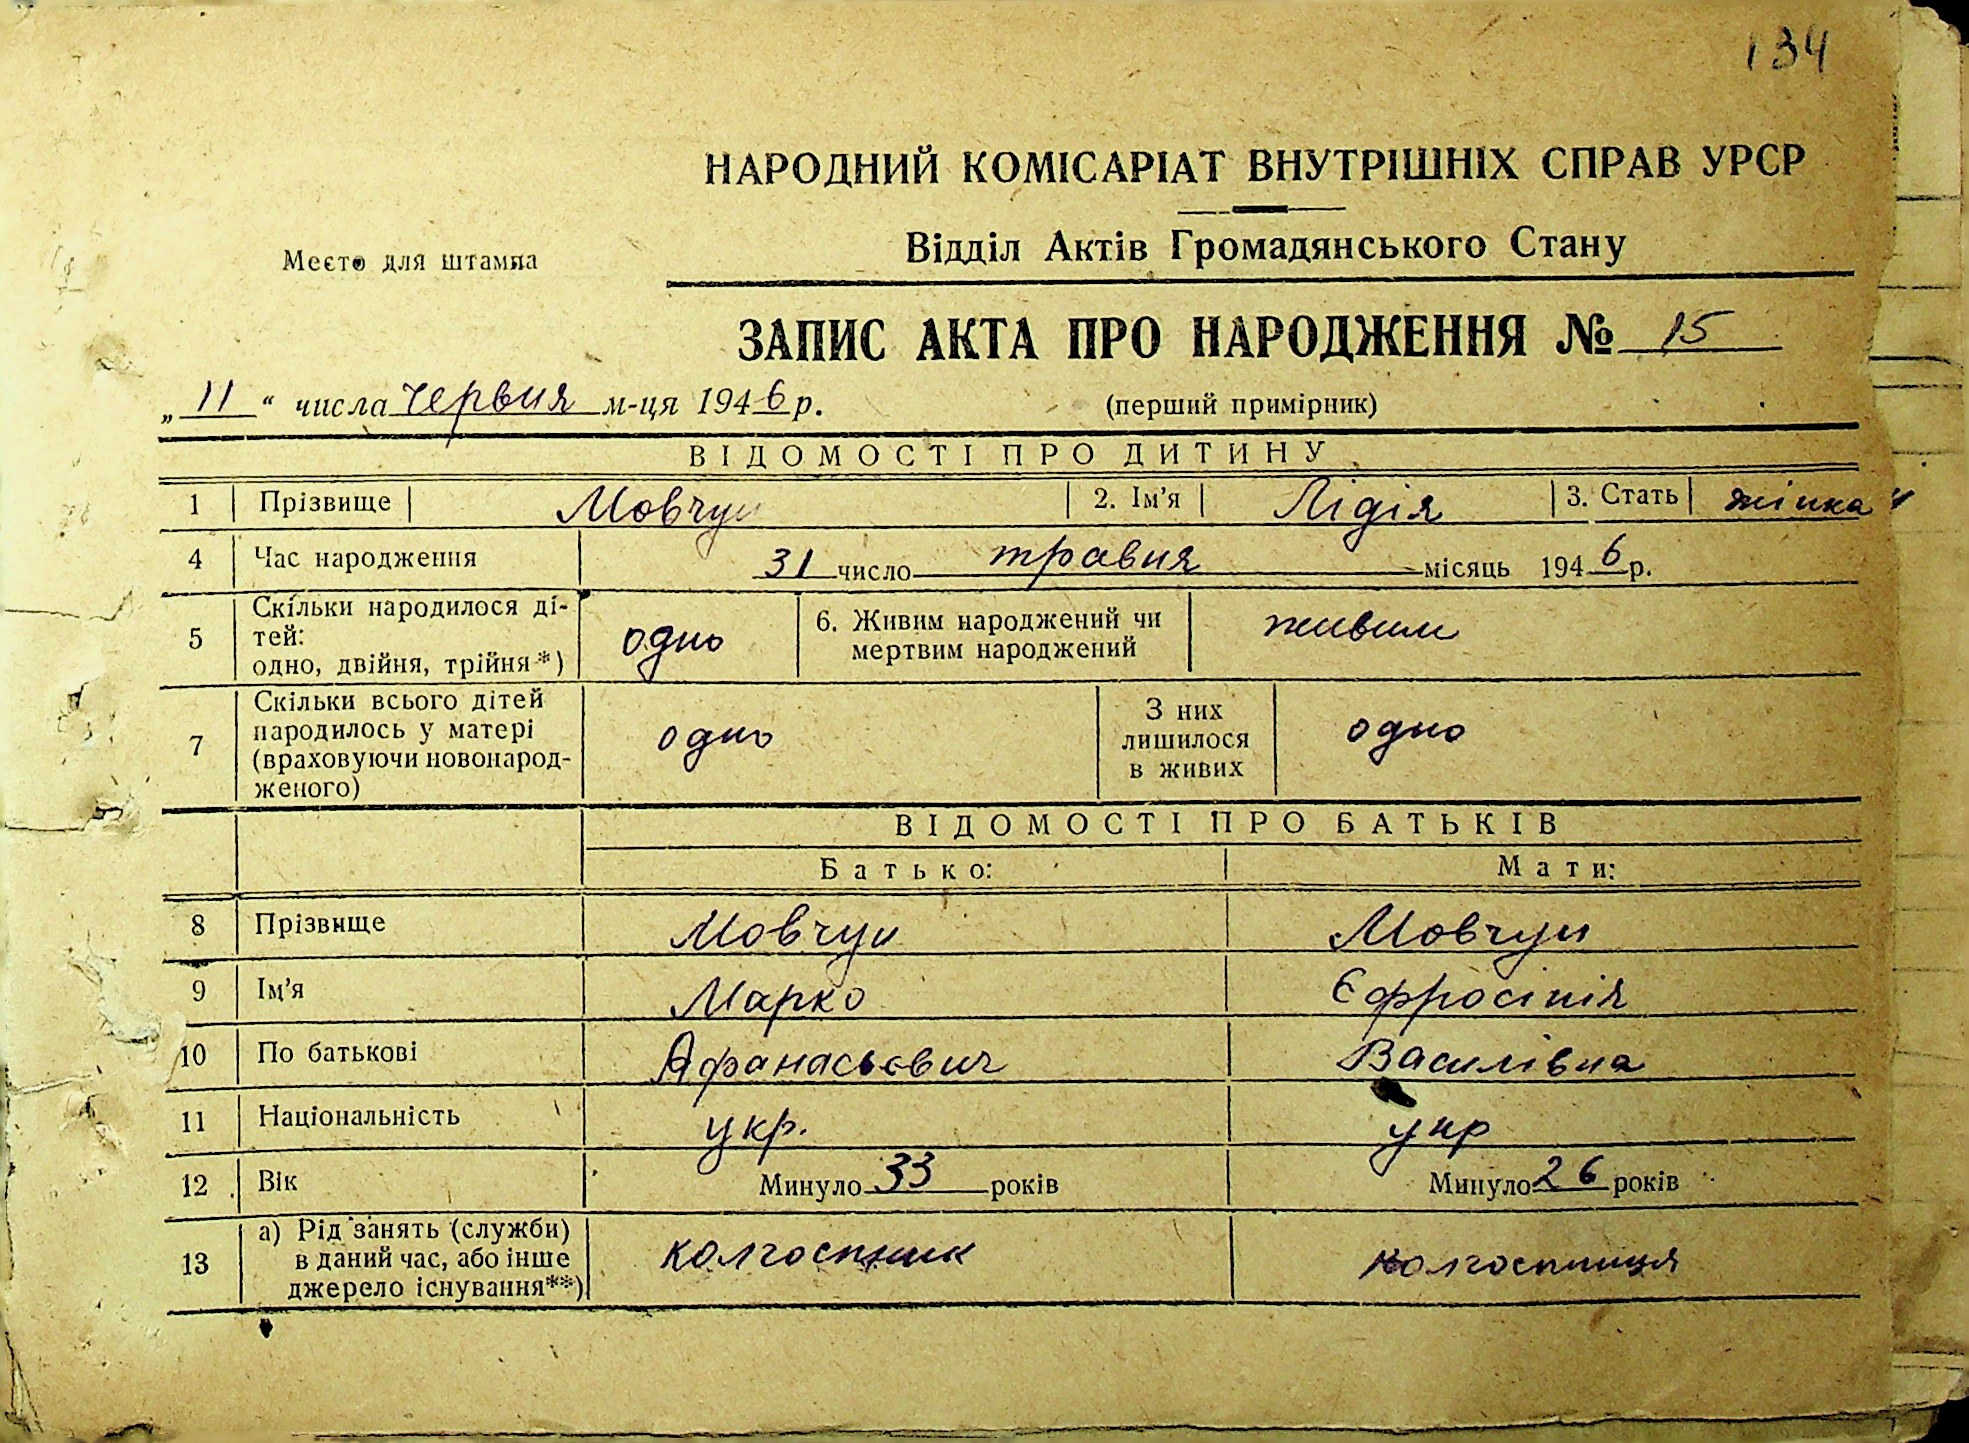 134
НАРОДНИЙ КОМІСАРІАТ ВНУТРІШНІХ СПРАВ УРСР
Відділ Актів Громадянського Стану
Место для штампа
ЗАПИС АКТА ПРО НАРОДЖЕННЯ № 15
„11“ числа червня м-ця 1946 р. (перший примірник)
ВІДОМОСТІ ПРО ДИТИНУ
1 Прізвище Мовчун 2. Ім'я Лідія 3. Стать жінка
4 Час народження 31 число травня місяць 1946 р.
5 Скільки народилося ді-
тей:
одно, двійня, трійня*) одно 6. Живим народжений чи
мертвим народжений живим
7 Скільки всього дітей
народилось у матері
(враховуючи новонарод-
женого) одно З них
лишилося
в живих одно
ВІДОМОСТІ ПРО БАТЬКІВ
Батько: Мати:
8 Прізвище Мовчун Мовчун
9 Ім'я Марко Єфросінія
10 По батькові Афанасьевич Василівна
11 Національність укр. укр
12 Вік Минуло 33 років Минуло 26 років
13 а) Рід занять (служби)
в даний час, або інше
джерело існування**) колгоспник колгоспниця